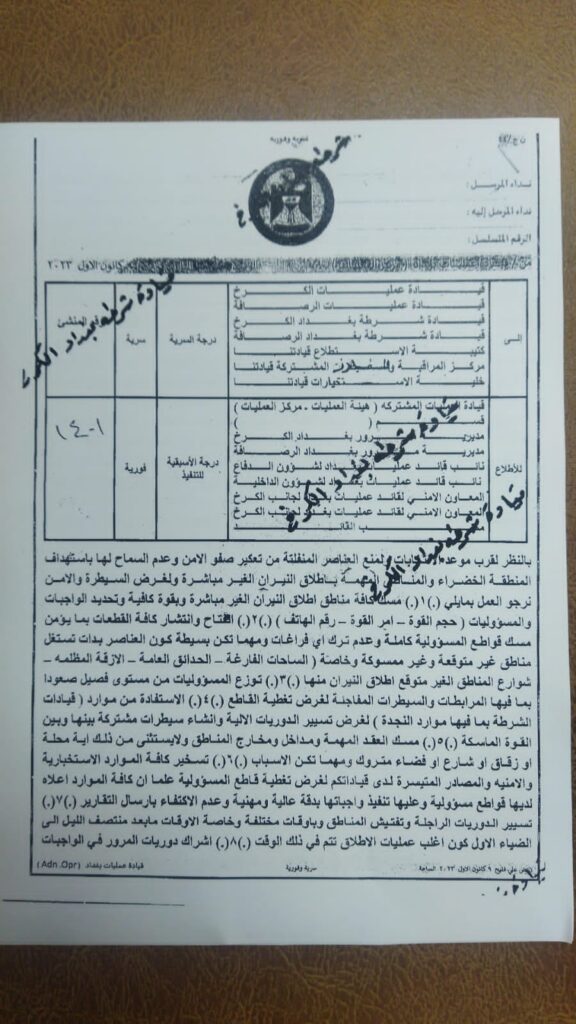 ن ج/٤٤
سرية وفورية
شرطة
الكرخ
نداء المرسل :
نداء المرسل إليه :
الرقم المتسلسل :
كانون الاول ٢٠٢٣
إلى
قيادة عمليات الكرخ
قيادة عمليات الرصافة
قيادة شرطة بغداد الكرخ
قيادة شرطة بغداد الرصافة
كتيبة الاستطلاع قيادتنا
مركز المراقبة المشتركة قيادتنا
خلية الاستخبارات قيادتنا
درجة السرية
سرية
المنشئ
قيادة شرطة بغداد الكرخ
للأطلاع
قيادة العمليات المشتركه ( هيئة العمليات - مركز العمليات )
قسم ( )
مديرية مرور بغداد الكرخ
مديرية مرور بغداد الرصافة
نائب قائد عمليات بغداد لشؤون الدفاع
نائب قائد عمليات بغداد لشؤون الداخلية
المعاون الامني لقائد عمليات بغداد لجانب الكرخ
المعاون الامني لقائد عمليات بغداد لجانب الكرخ
ب القائد
درجة الأسبقية للتنفيذ
فورية
١٤٠١
قيادة شرطة بغداد الكرخ
قيادة شرطة بغداد الكرخ
بالنظر لقرب موعد ولمنع العناصر المنفلتة من تعكير صفو الامن وعدم السماح لها باستهداف
المنطقة الخضراء والمناطق المهمة باطلاق النيران الغير مباشرة ولغرض السيطرة والامن
نرجو العمل بمايلي (.)١(.) مسك كافة مناطق اطلاق النيران الغير مباشرة وبقوة كافية وتحديد الواجبات
والمسؤوليات ( حجم القوة – امر القوة – رقم الهاتف ) (.)٢(.) انفتاح وانتشار كافة القطعات بما يؤمن
مسك قواطع المسؤولية كاملة وعدم ترك اي فراغات ومهما تكن بسيطة كون العناصر بدات تستغل
مناطق غير متوقعة وغير ممسوكة وخاصة ( الساحات الفارغة – الحدائق العامة – الازقة المظلمه –
شوارع المناطق الغير متوقع اطلاق النيران منها (.)٣(.) توزع المسؤوليات من مستوى فصيل صعودا
بما فيها المرابطات والسيطرات المفاجئة لغرض تغطية القاطع (.)٤(.) الاستفادة من موارد ( قيادات
الشرطة بما فيها موارد النجدة ) لغرض تسيير الدوريات الالية وانشاء سيطرات مشتركة بينها وبين
القوة الماسكة (.)٥(.) مسك العقد المهمة ومداخل ومخارج المناطق ولايستثنى من ذلك اية محلة
او زقاق او شارع او فضاء متروك ومهما تكن الاسباب (.)٦(.) تسخير كافة الموارد الاستخبارية
والامنيه والمصادر المتيسرة لدى قياداتكم لغرض تغطية قاطع المسؤولية علما ان كافة الموارد اعلاه
لديها قواطع مسؤولية وعليها تنفيذ واجباتها بدقة عالية ومهنية وعدم الاكتفاء بارسال التقارير (.)٧(.)
تسيير الدوريات الراجلة وتفتيش المناطق وباوقات مختلفة وخاصة الاوقات مابعد منتصف الليل الى
الضياء الاول كون اغلب عمليات الاطلاق تتم في ذلك الوقت (.)٨(.) اشراك دوريات المرور في الواجبات
٩ كانون الاول ٢٠٢٣ الساعة
سرية وفورية
قيادة عمليات بغداد (Adn .Opr)